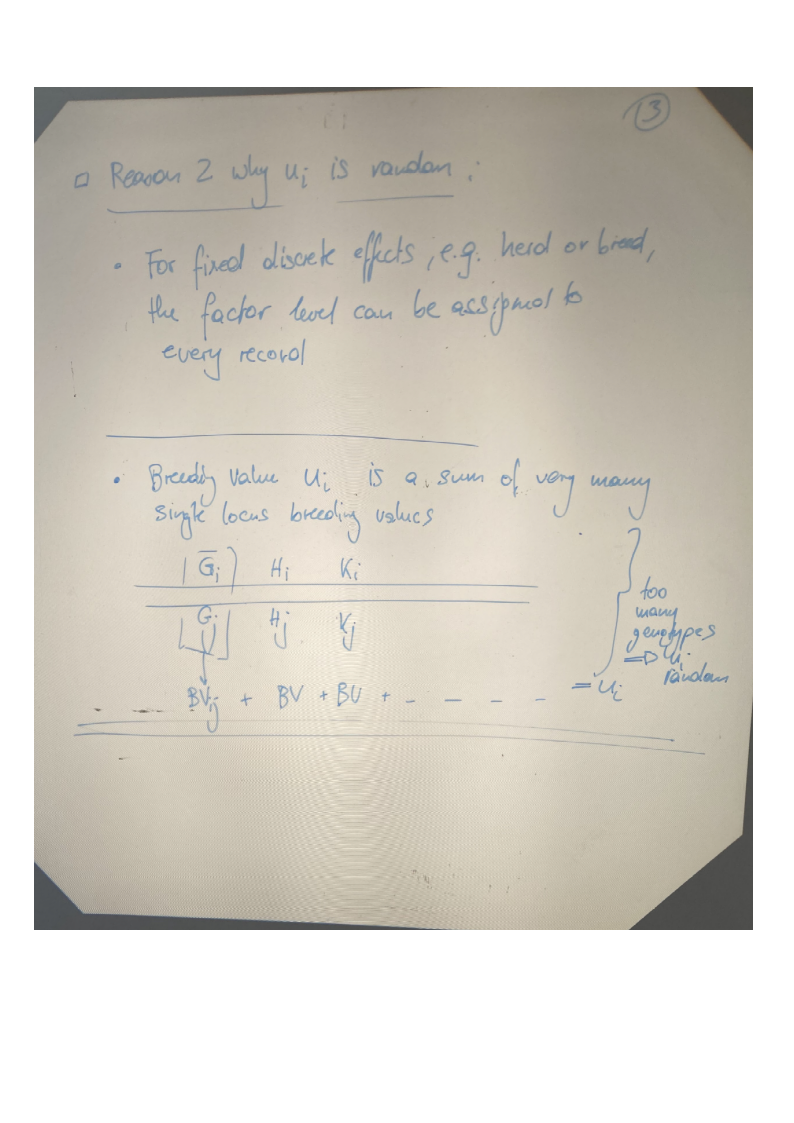 13
□ Reason 2 why u_i is random :
• For fixed discrete effects, e.g. herd or breed,
the factor level can be assigned to
every record
• Breeding value u_i is a sum of very many
single locus breeding values
G_i H_i K_i
G_j H_j K_j
BV_ij + BV + BV + - - - - = u_i
too
many
genotypes
⇒ u_i
random